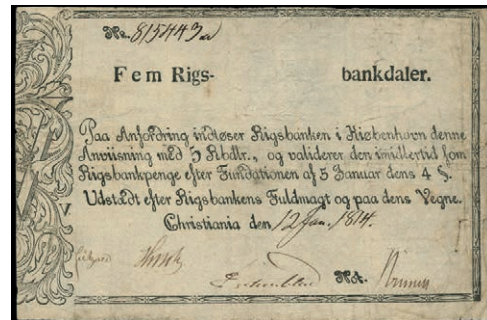 No. 815443a
Fem Rigs- bankdaler.
Paa Anfordring indløser Rigsbanken i Kiøbenhavn denne
Anviisning med 5 Rbdlr., og validerer den imidlertid som
Rigsbankpenge efter Fundationen af 5 Januar dens 4 §.
Udstædt efter Rigsbankens Fuldmagt og paa dens Vegne.
Christiania den 12 Jan. 1814.
V
Not.